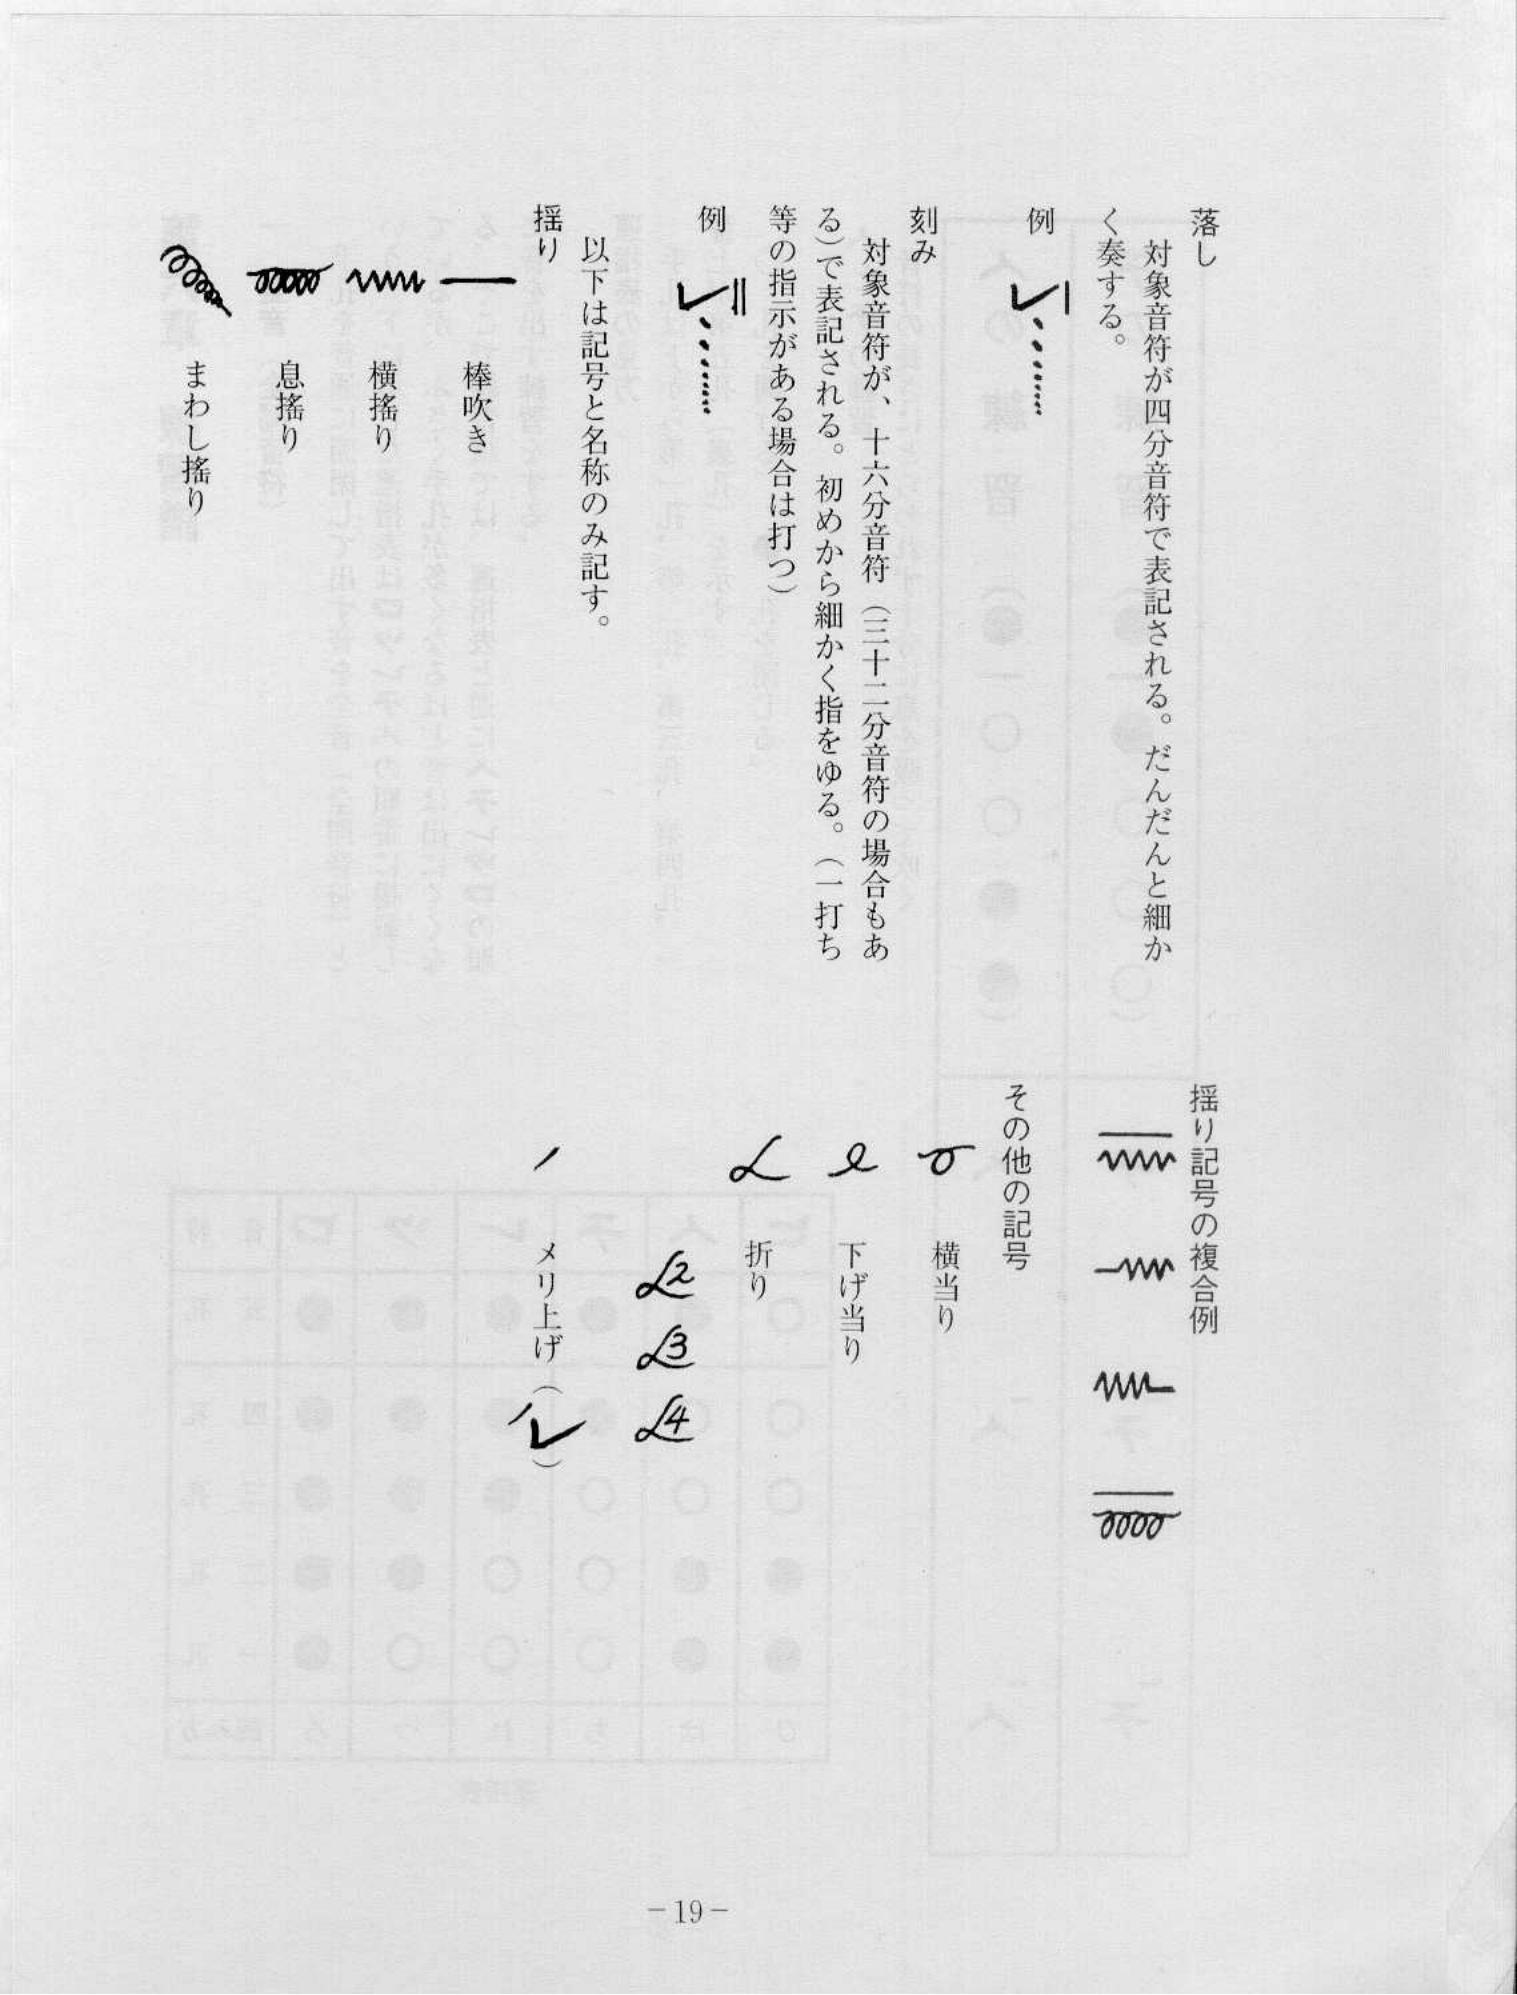 落し
対象音符が四分音符で表記される。だんだんと細か
く奏する。
例
レ
刻み
対象音符が、十六分音符(三十二分音符の場合もあ
る)で表記される。初めから細かく指をゆる。(一打ち
等の指示がある場合は打つ)
例
レ
以下は記号と名称のみ記す。
揺り
棒吹き
横搖り
息搖り
まわし搖り
揺り記号の複合例
その他の記号
横当り
下げ当り
折り
2
3
4
メリ上げ(レ)
-19-